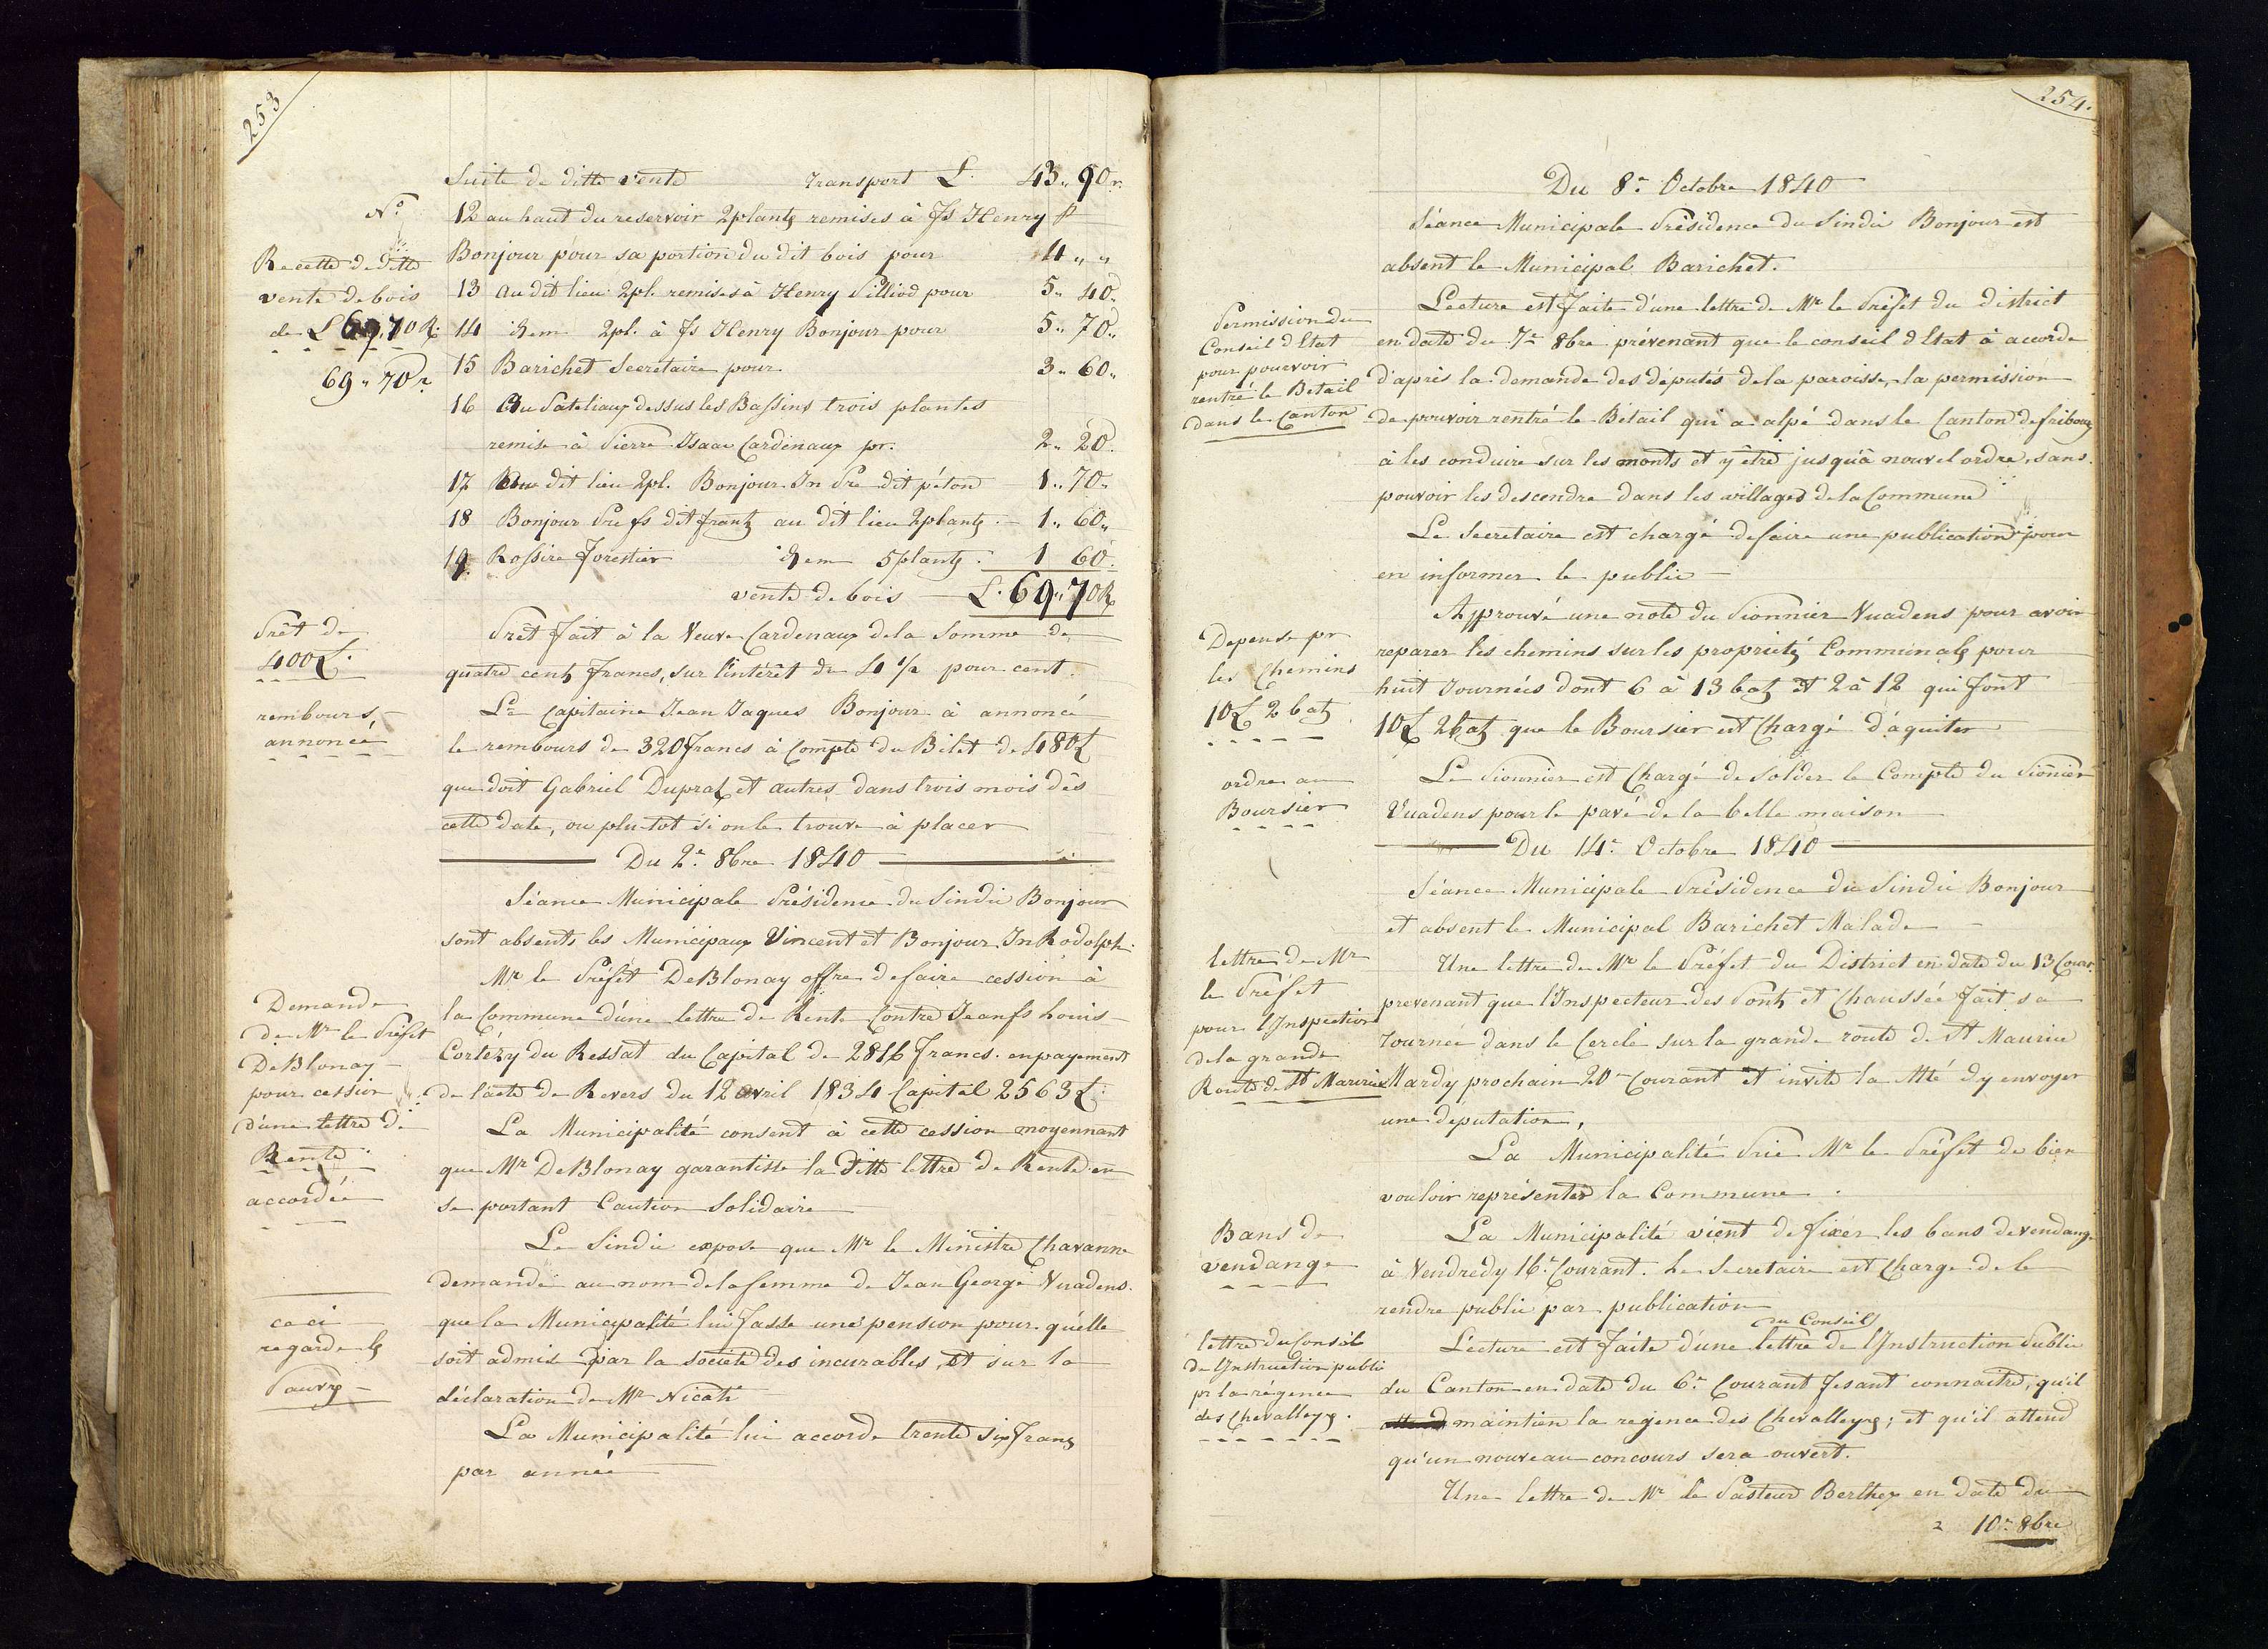 253
Suite de ditte vente transport L. 43" 90 r.
N.° 12 au haut du reservoir 2 plantz remises à fs Henry ff
Bonjour pour sa portion du dit bois pour 4 " "
Recette de ditte
vente de bois
de L 69,70 R.
69 " 70 r.
13 Au dit lieu 2 pl. remises à Henry Pilliod pour 5" 40"
14 idem 2 pl. à fs Henry Bonjour pour 5" 70"
15 Barichet Secretaire pour 3" 60"
16 Au Pateliaux dessus les Bassins trois plantes
remise à Pierre Isaac Cardinaux pr. 2" 20.
17 Au dit lieu 2 pl. Bonjour Jn Pre dit péton 1" 70"
18 Bonjour Pre fs dit frantz au dit lieu 2 plantz. 1" 60"
19 Rossire forestier idem 5 plantz. 1 60.
vente de bois L. 69" 70 R
Prêt de
400 L.
Prêt fait à la Veuve Cardenaux de la Somme de
quatre centz francs, sur l'intérêt de 4 1/2 pour cent.
rembours,
annoncée
Le Capitaine Jean Jaques Bonjour à annoncé
le rembours de 320 francs à Compte du Bilet de 480 L
que doit Gabriel Dupraz et autres dans trois mois dès
cette date, ou plutot si on le trouve à placer
Du 2.e 8bre 1840
Séance Municipale Présidence du Sindic Bonjour
sont absents les Municipaux Vincent et Bonjour Jn Rodolph.
Demande
de Mr le Préfet
DeBlonay
pour cession
d'une lettre de
Rente
accordée
Mr le Préfet DeBlonay offre de faire cession à
la Commune d'une lettre de Rente Contre Jean fs Louis
Cortézy du Ressat du Capital de 2816 francs. en payement
de l'acte de Revers du 12 avril 1834 Capital 2563 L.
La Municipalité consent à cette cession moyennant
que Mr DeBlonay garantisse la ditte lettre de Rente en
se portant Caution Solidaire
ceci
regarde les
Pauvres
Le Sindic expose que Mr le Ministre Chavanne
demande au nom de la femme de Jean George Vuadens.
que la Municipalité lui fasse une pension pour qu'elle
soit admis par la société des incurables, et sur la
déclaration de Mr Nicati
La Municipalité lui accorde trente six franz
par année
254.
Du 8.e Octobre 1840
Séance Municipale Présidence du Sindic Bonjour est
absent le Municipal Barichet.
Permission du
Conseil d'Etat
pour pouevoir
rentré le Betail
dans le Canton
Lecture est faite d'une lettre de Mr le Préfet du district
en date du 7e 8bre prévenant que le conseil d'Etat à accorde
d'après la demande des députés de la paroisse, la permission
de pouvoir rentré le Bétail qui a alpé dans le Canton de fribourg
à les conduire sur les monts et y être jusqu'à nouvel ordre, sans
pouvoir les descendre dans les villages de la Commune
Le Secretaire est chargé de faire une publication pour
en informer le public
Depense pr
les Chemins
10 L 2 batz
Approuvé une note du Pionnier Vuadens pour avoir
reparer les chemins sur les propriétz Communalz pour
huit Journées dont 6 à 13 batz et 2 à 12 qui font
10 L 2 batz que le Boursier est Chargé d'aquiter
ordre au
Boursier
Le Pionnier est Chargé de Solder le Compte du Pionier
Vuadens pour le pavé de la belle maison
Du 14.e Octobre 1840
Séance Municipale Présidence du Sindic Bonjour
et absent le Municipal Barichet Malade
lettre de Mr
le Préfet
pour l'Inspection
de la grande
Route de St Maurice
Une lettre de Mr le Préfet du District en date du 13 Cour.
prevenant que l'Inspecteur des Pontz et Chaussée fait sa
Tournée dans le Cercle sur la grande route de St Maurice
Mardy prochain 20e Courant et invite la Mté d'y envoyer
une deputation,
La Municipalité Prie Mr le Préfet de bien
vouloir représenter la Commune.
Bans de
vendange
La Municipalité vient de fixer les bans de vendange
à Vendredy 16.e Courant. Le Secretaire est Chargé de le
rendre public par publication
lettre du Conseil
de l'Instruction public
pr la régence
des Chevalleyz.
du Conseil
Lecture est faite d'une lettre de l'Instruction Public
du Canton en date du 6.e Courant fesant connaitre, qu'il
attend maintien la regence des Chevalleyz; et qu'il attend
qu'un nouveau concours sera ouvert.
Une lettre de Mr le Pasteur Berthex en date du
10e 8bre